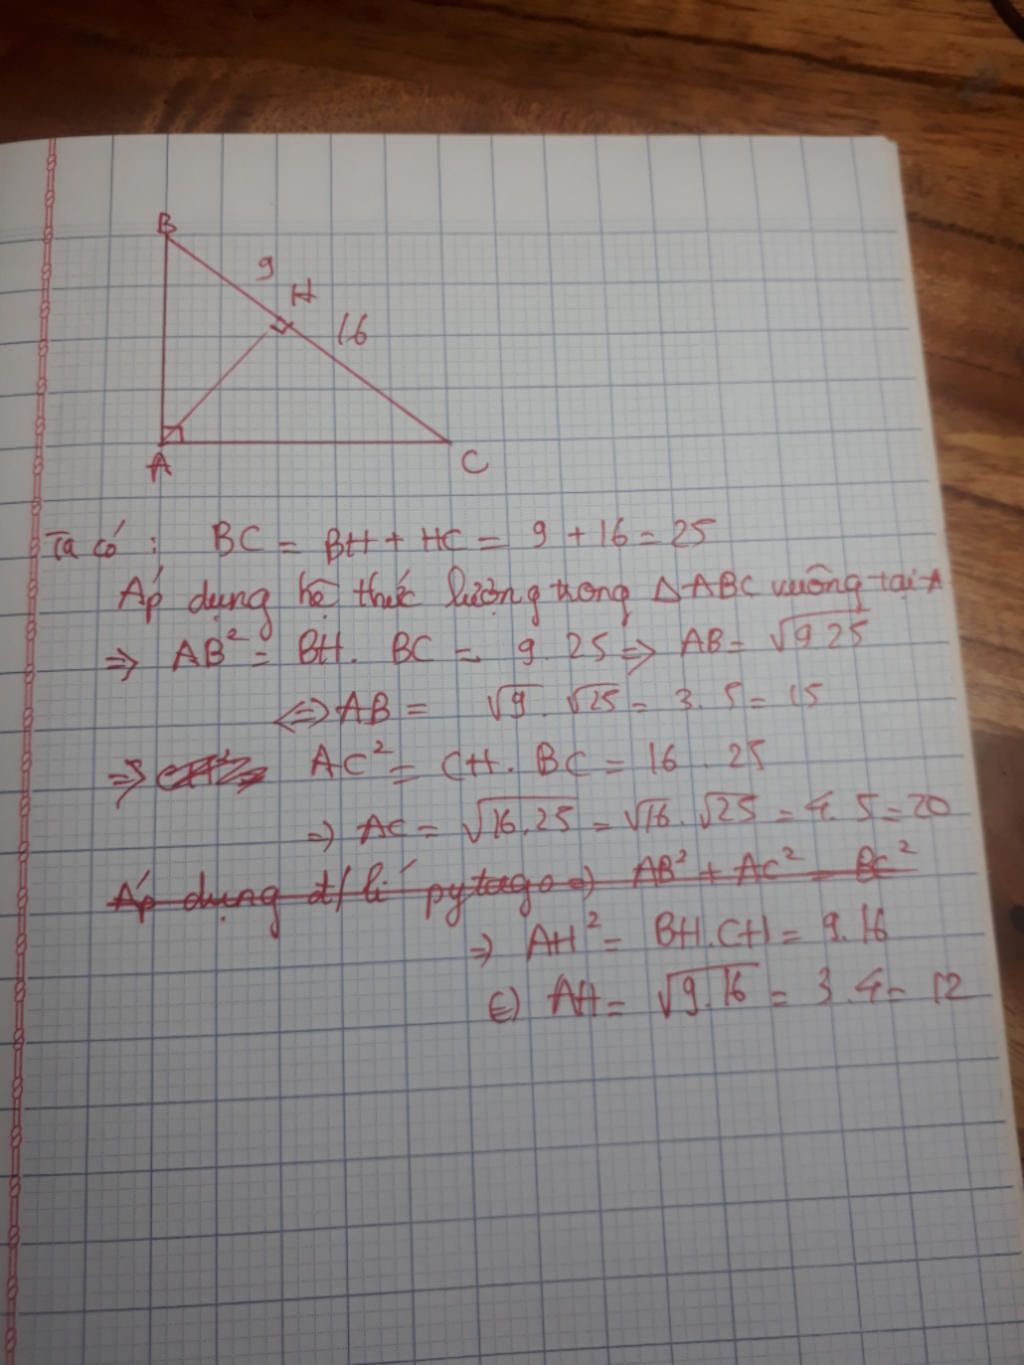 B
9
H
16
A
C
Ta có : BC = BH + HC = 9 + 16 = 25
Áp dụng hệ thức lượng trong Δ ABC vuông tại A
=> AB² = BH. BC = 9. 25 => AB = √9 25
<=> AB = √9. √25 = 3. 5 = 15
=> AC² = CH. BC = 16 . 25
=> AC = √16.25 = √16. √25 = 4. 5 = 20
Áp dụng đ/lí pytago => AB² + AC² = BC²
=> AH² = BH.CH = 9. 16
AH = √9.16 = 3.4 = 12